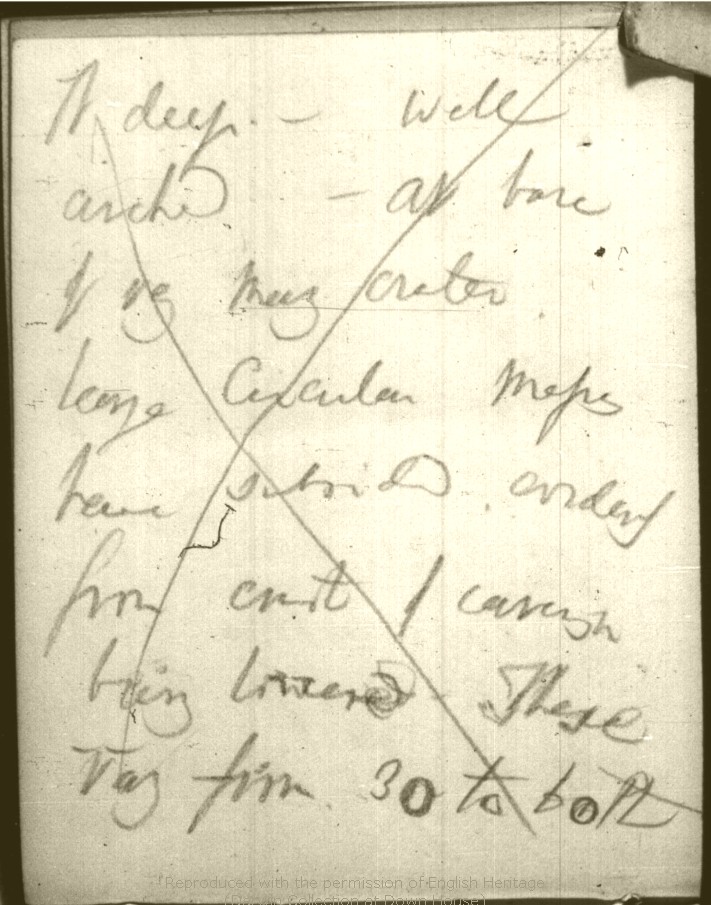 ft deep. — well
arched — at base
of very many craters
large Circular masses
have subsided. evidently
from crust of cavern
being lowered These
vary from 30 to 60 ft
Reproduced with the permission of English Heritage
(Darwin Collection at Down House)